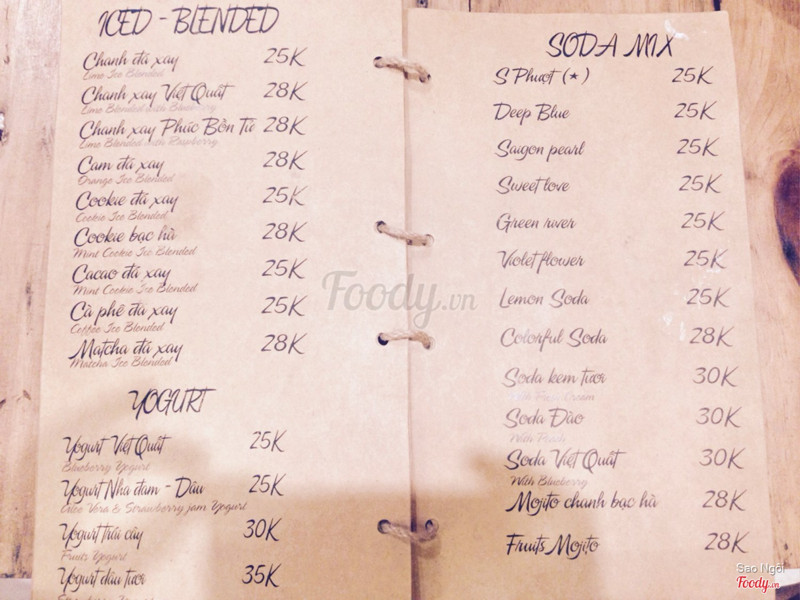 ICED - BLENDED
Chanh đá xay 25K
Lime Ice Blended
Chanh xay Việt Quất 28K
Lime Blended with Blueberry
Chanh xay Phúc Bồn Tử 28K
Lime Blended with Raspberry
Cam đá xay 28K
Orange Ice Blended
Cookie đá xay 25K
Cookie Ice Blended
Cookie bạc hà 28K
Mint Cookie Ice Blended
Cacao đá xay 25K
Mint Cookie Ice Blended
Cà phê đá xay 25K
Coffee Ice Blended
Matcha đá xay 28K
Matcha Ice Blended
YOGURT
Yogurt Việt Quất 25K
Blueberry Yogurt
Yogurt Nha đam - Dâu 25K
Aloe Vera & Strawberry jam Yogurt
Yogurt trái cây 30K
Fruits Yogurt
Yogurt dâu tươi 35K
Strawberry Yogurt
SODA MIX
S Phượt (★) 25K
Deep Blue 25K
Saigon pearl 25K
Sweet love 25K
Green river 25K
Violet flower 25K
Lemon Soda 25K
Colorful Soda 28K
Soda kem tươi 30K
With Fresh Cream
Soda Đào 30K
With Peach
Soda Việt Quất 30K
With Blueberry
Mojito chanh bạc hà 28K
Fruits Mojito 28K
Foody.vn
Sao Ngôi
Foody.vn